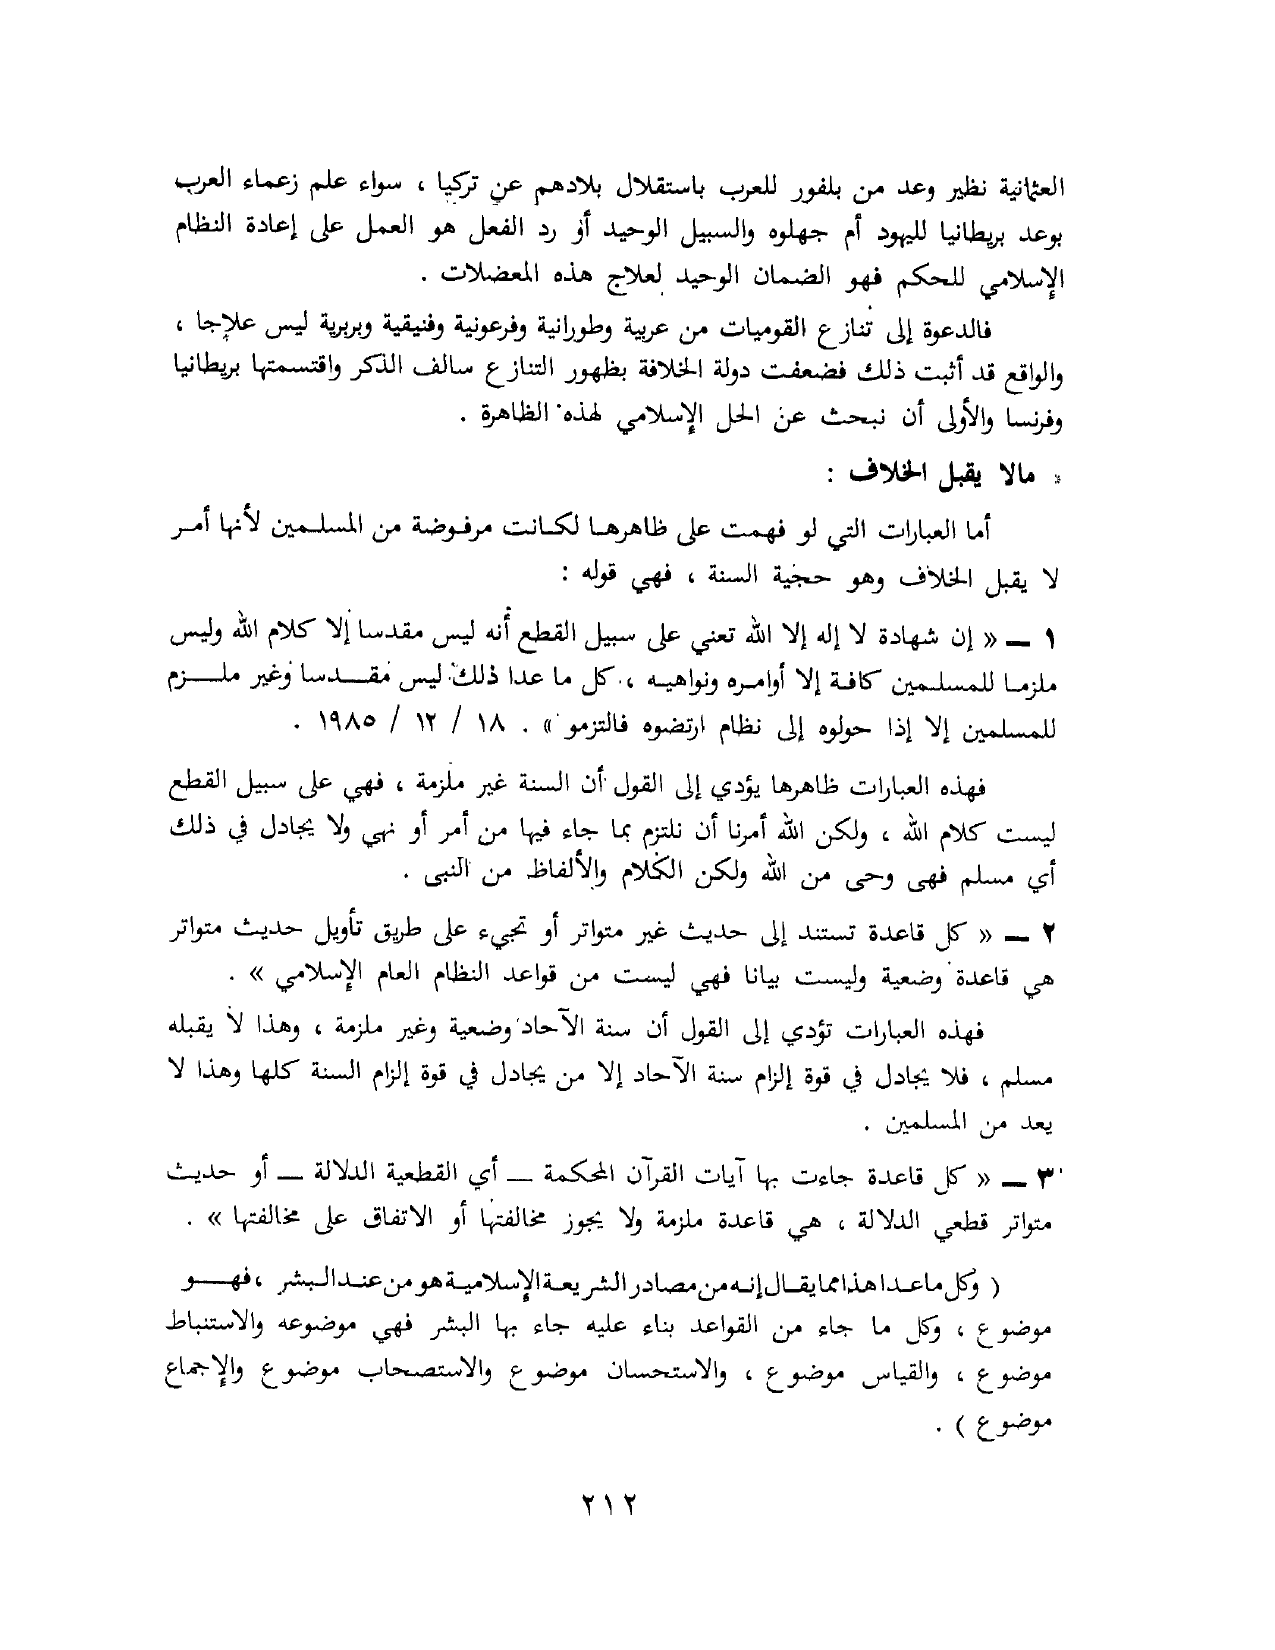 العثمانية نظير وعد من بلفور للعرب باستقلال بلادهم عن تركيا ، سواء علم زعماء العرب
بوعد بريطانيا لليهود أم جهلوه والسبيل الوحيد أو رد الفعل هو العمل على إعادة النظام
الإسلامي للحكم فهو الضمان الوحيد لعلاج هذه المعضلات .
فالدعوة إلى تنازع القوميات من عربية وطورانية وفرعونية وفنيقية وبربرية ليس علاجا ،
والواقع قد أثبت ذلك فضعفت دولة الخلافة بظهور التنازع سالف الذكر واقتسمتها بريطانيا
وفرنسا والأولى أن نبحث عن الحل الإسلامي لهذه الظاهرة .
* مالا يقبل الخلاف :
أما العبارات التي لو فهمت على ظاهرها لكانت مرفوضة من المسلمين لأنها أمر
لا يقبل الخلاف وهو حجية السنة ، فهي قوله :
١ ــ « إن شهادة لا إله إلا الله تعني على سبيل القطع أنه ليس مقدسا إلا كلام الله وليس
ملزما للمسلمين كافة إلا أوامره ونواهيه ، كل ما عدا ذلك ليس مقدسا وغير ملزم
للمسلمين إلا إذا حولوه إلى نظام ارتضوه فالتزمو » . ١٨ / ١٢ / ١٩٨٥ .
فهذه العبارات ظاهرها يؤدي إلى القول أن السنة غير ملزمة ، فهي على سبيل القطع
ليست كلام الله ، ولكن الله أمرنا أن نلتزم بما جاء فيها من أمر أو نهي ولا يجادل في ذلك
أي مسلم فهى وحى من الله ولكن الكلام والألفاظ من النبى .
٢ ــ « كل قاعدة تستند إلى حديث غير متواتر أو تجيء على طريق تأويل حديث متواتر
هي قاعدة وضعية وليست بيانا فهي ليست من قواعد النظام العام الإسلامي » .
فهذه العبارات تؤدي إلى القول أن سنة الآحاد وضعية وغير ملزمة ، وهذا لا يقبله
مسلم ، فلا يجادل في قوة إلزام سنة الآحاد إلا من يجادل في قوة إلزام السنة كلها وهذا لا
يعد من المسلمين .
٣ ــ « كل قاعدة جاءت بها آيات القرآن المحكمة ــ أي القطعية الدلالة ــ أو حديث
متواتر قطعي الدلالة ، هي قاعدة ملزمة ولا يجوز مخالفتها أو الاتفاق على مخالفتها » .
( وكل ماعدا هذا مما يقال إنه من مصادر الشريعة الإسلامية هو من عند البشر ، فهو
موضوع ، وكل ما جاء من القواعد بناء عليه جاء بها البشر فهي موضوعه والاستنباط
موضوع ، والقياس موضوع ، والاستحسان موضوع والاستصحاب موضوع والإجماع
موضوع ) .
٢١٢